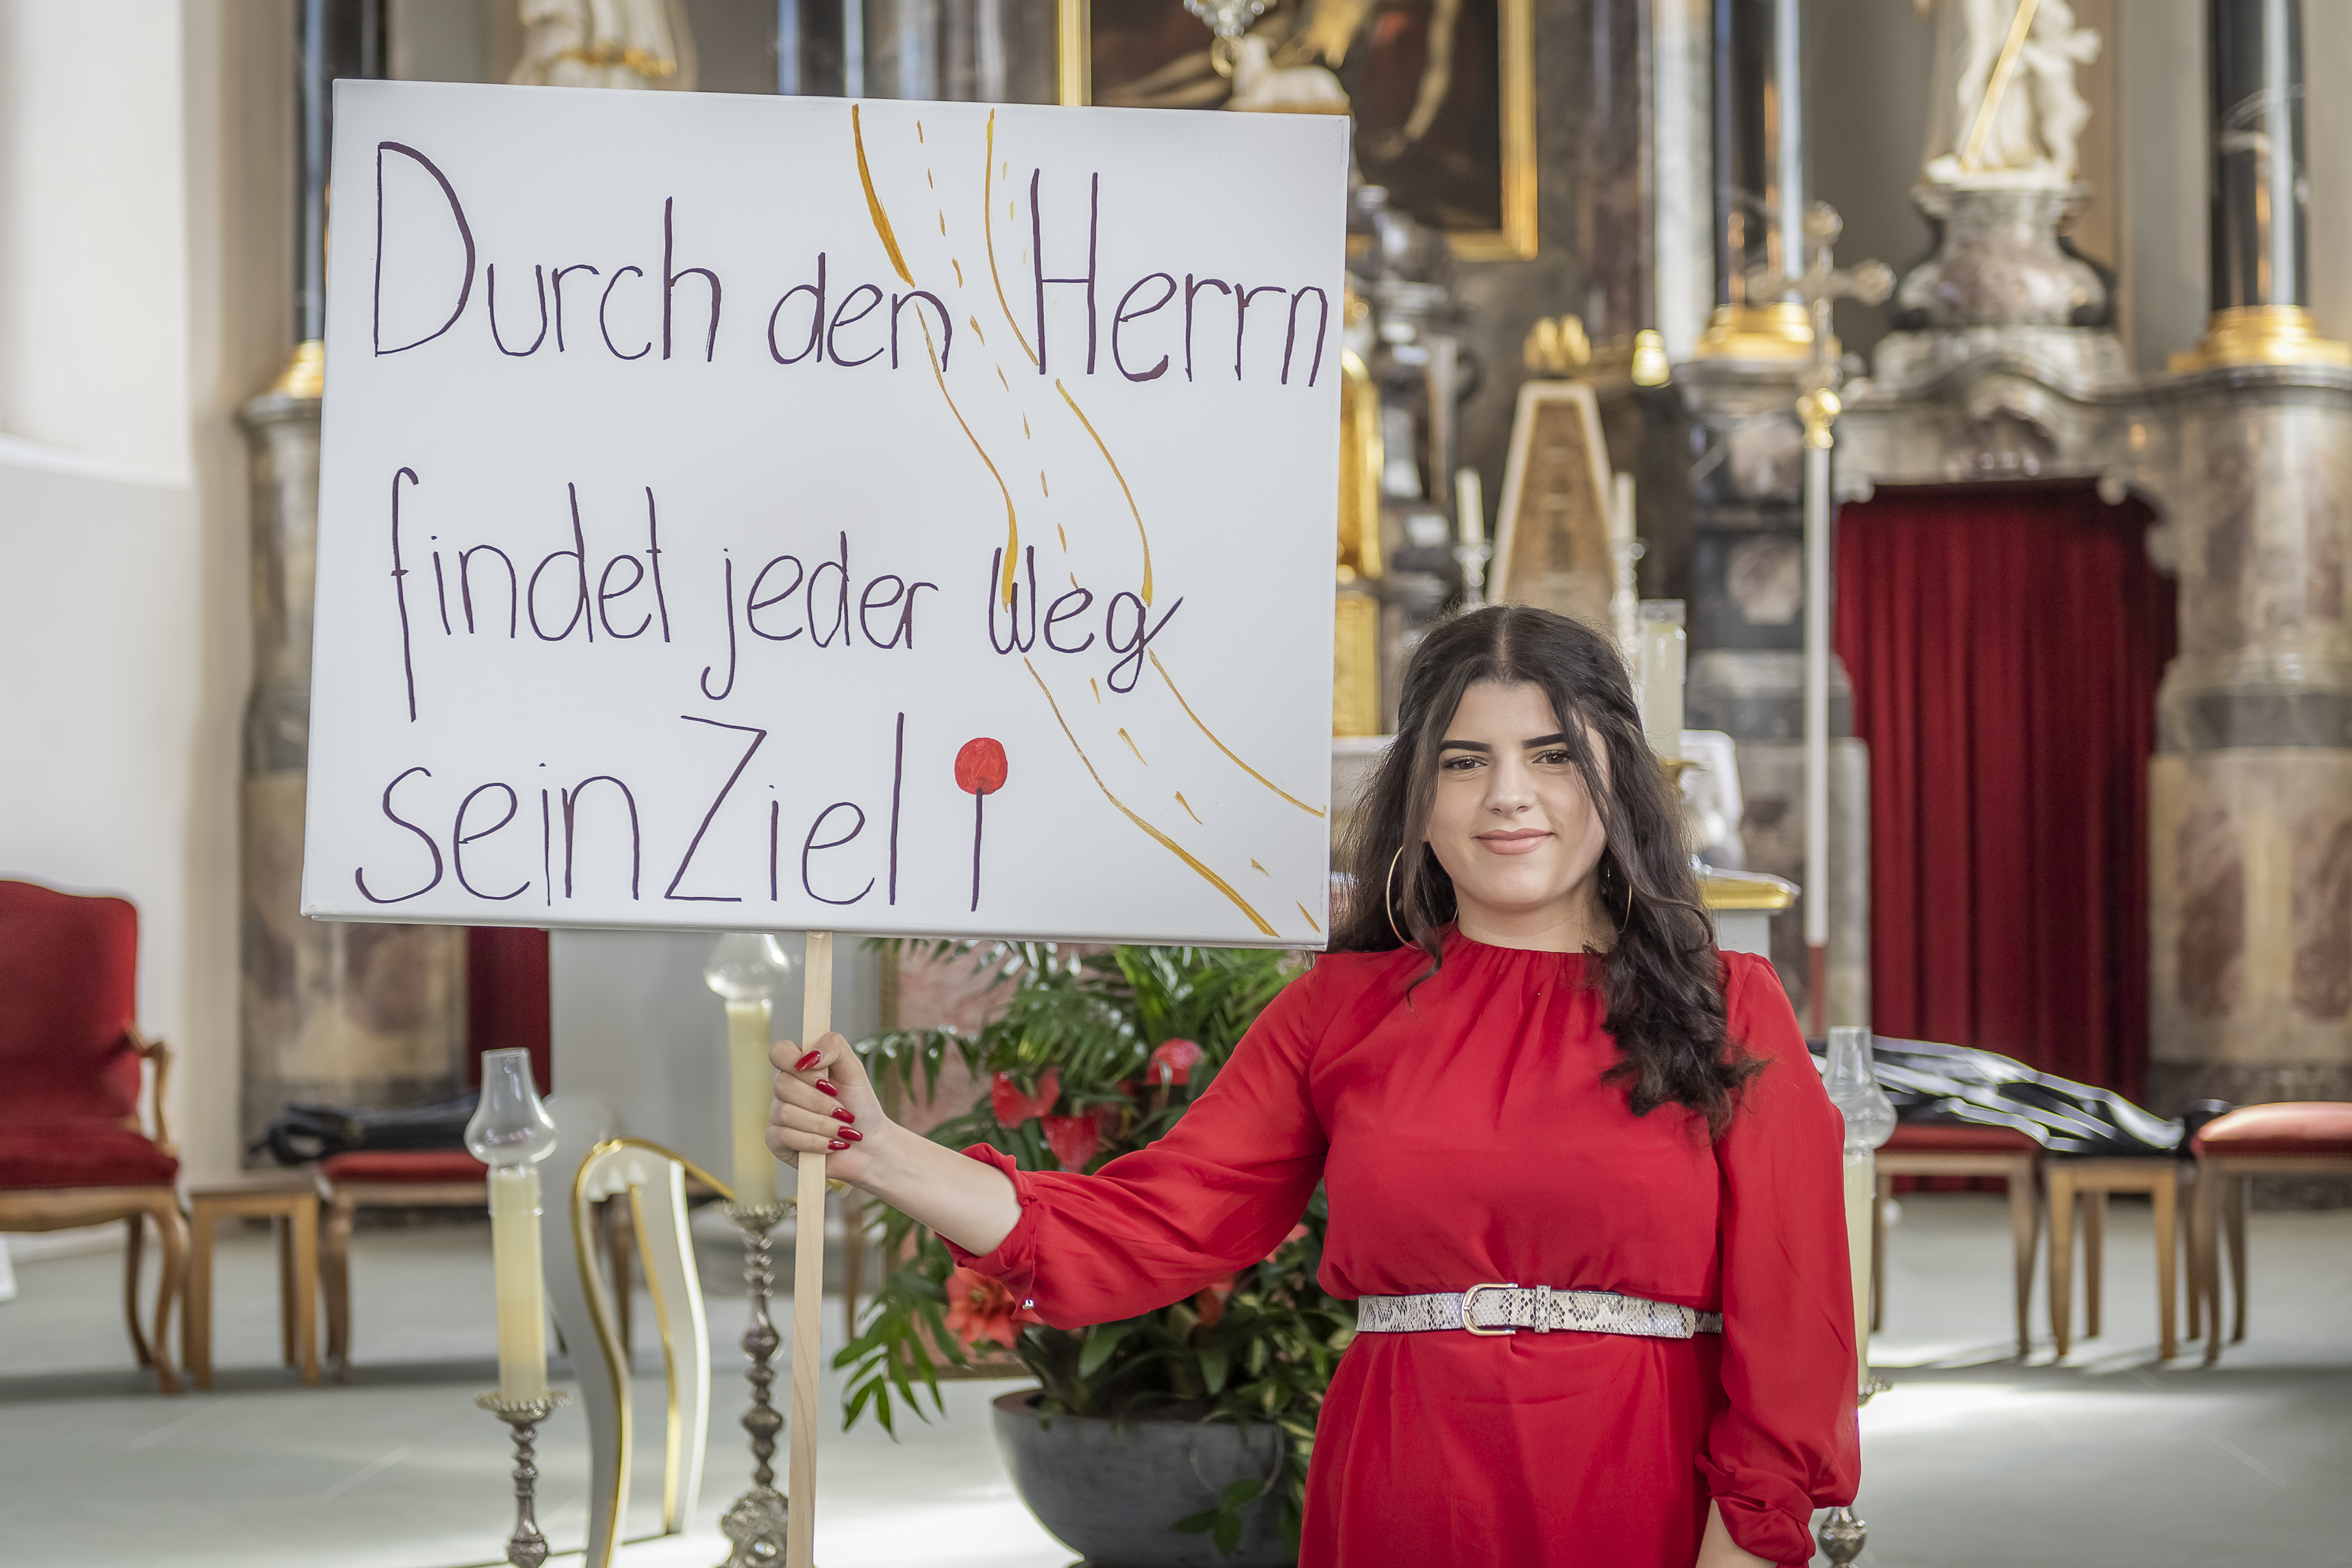 Durch den Herrn
findet jeder Weg
sein Ziel